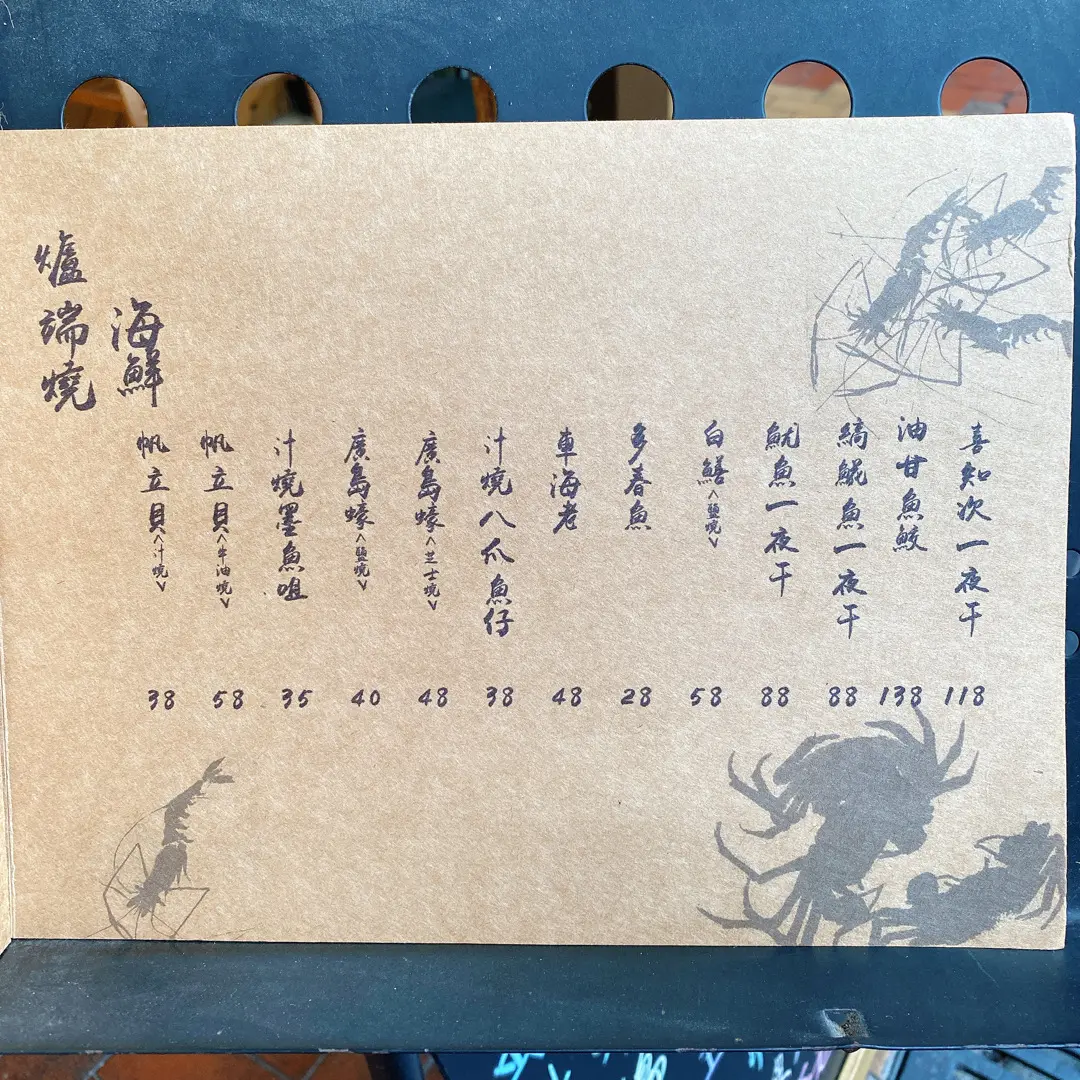 爐端燒
海鮮
帆立貝<汁燒> 38
帆立貝<牛油燒> 58
汁燒墨魚咀 35
廣島蠔<鹽燒> 40
廣島蠔<芝士燒> 48
汁燒八爪魚仔 38
車海老 48
多春魚 28
白鱔<鹽燒> 58
魷魚一夜干 88
縞𩸽魚一夜干 88
油甘魚鮫 138
喜知次一夜干 118